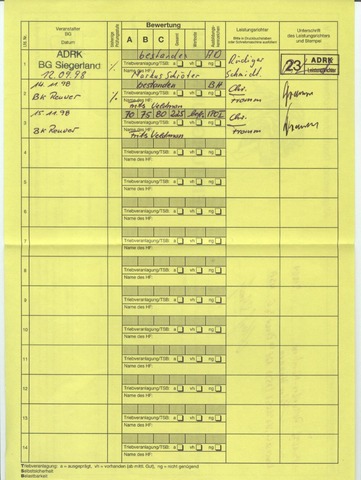 Veranstalter
BG
Datum
Bewertung
A B C
Leistungsrichter
Bitte in Druckbuchstaben
oder Schreibmaschine ausfüllen!
Unterschrift
des Leistungsrichters
und Stempel
1 ADRK
BG Siegerland
12.09.98
bestanden AD
Triebveranlagung/TSB: a vh ng
Name des HF: Markus Schlöter
Rüdiger
Schmidt
23 ADRK
Leistungsrichter
2 14.11.98
BK Reuver
bestanden BH
Triebveranlagung/TSB: a vh ng
Name des HF: Frits Veldman
Chr.
Fromm
3 15.11.98
BK Reuver
70 75 80 225
Triebveranlagung/TSB: a vh ng
Name des HF: Frits Veldman
Chr.
Fromm
4
Triebveranlagung/TSB: a vh ng
Name des HF:
5
Triebveranlagung/TSB: a vh ng
Name des HF:
6
Triebveranlagung/TSB: a vh ng
Name des HF:
7
Triebveranlagung/TSB: a vh ng
Name des HF:
8
Triebveranlagung/TSB: a vh ng
Name des HF:
9
Triebveranlagung/TSB: a vh ng
Name des HF:
10
Triebveranlagung/TSB: a vh ng
Name des HF:
11
Triebveranlagung/TSB: a vh ng
Name des HF:
12
Triebveranlagung/TSB: a vh ng
Name des HF:
13
Triebveranlagung/TSB: a vh ng
Name des HF:
14
Triebveranlagung/TSB: a vh ng
Name des HF:
Triebveranlagung: a = ausgeprägt, vh = vorhanden (ab mittl. Gut), ng = nicht genügend
Selbstsicherheit
Belastbarkeit